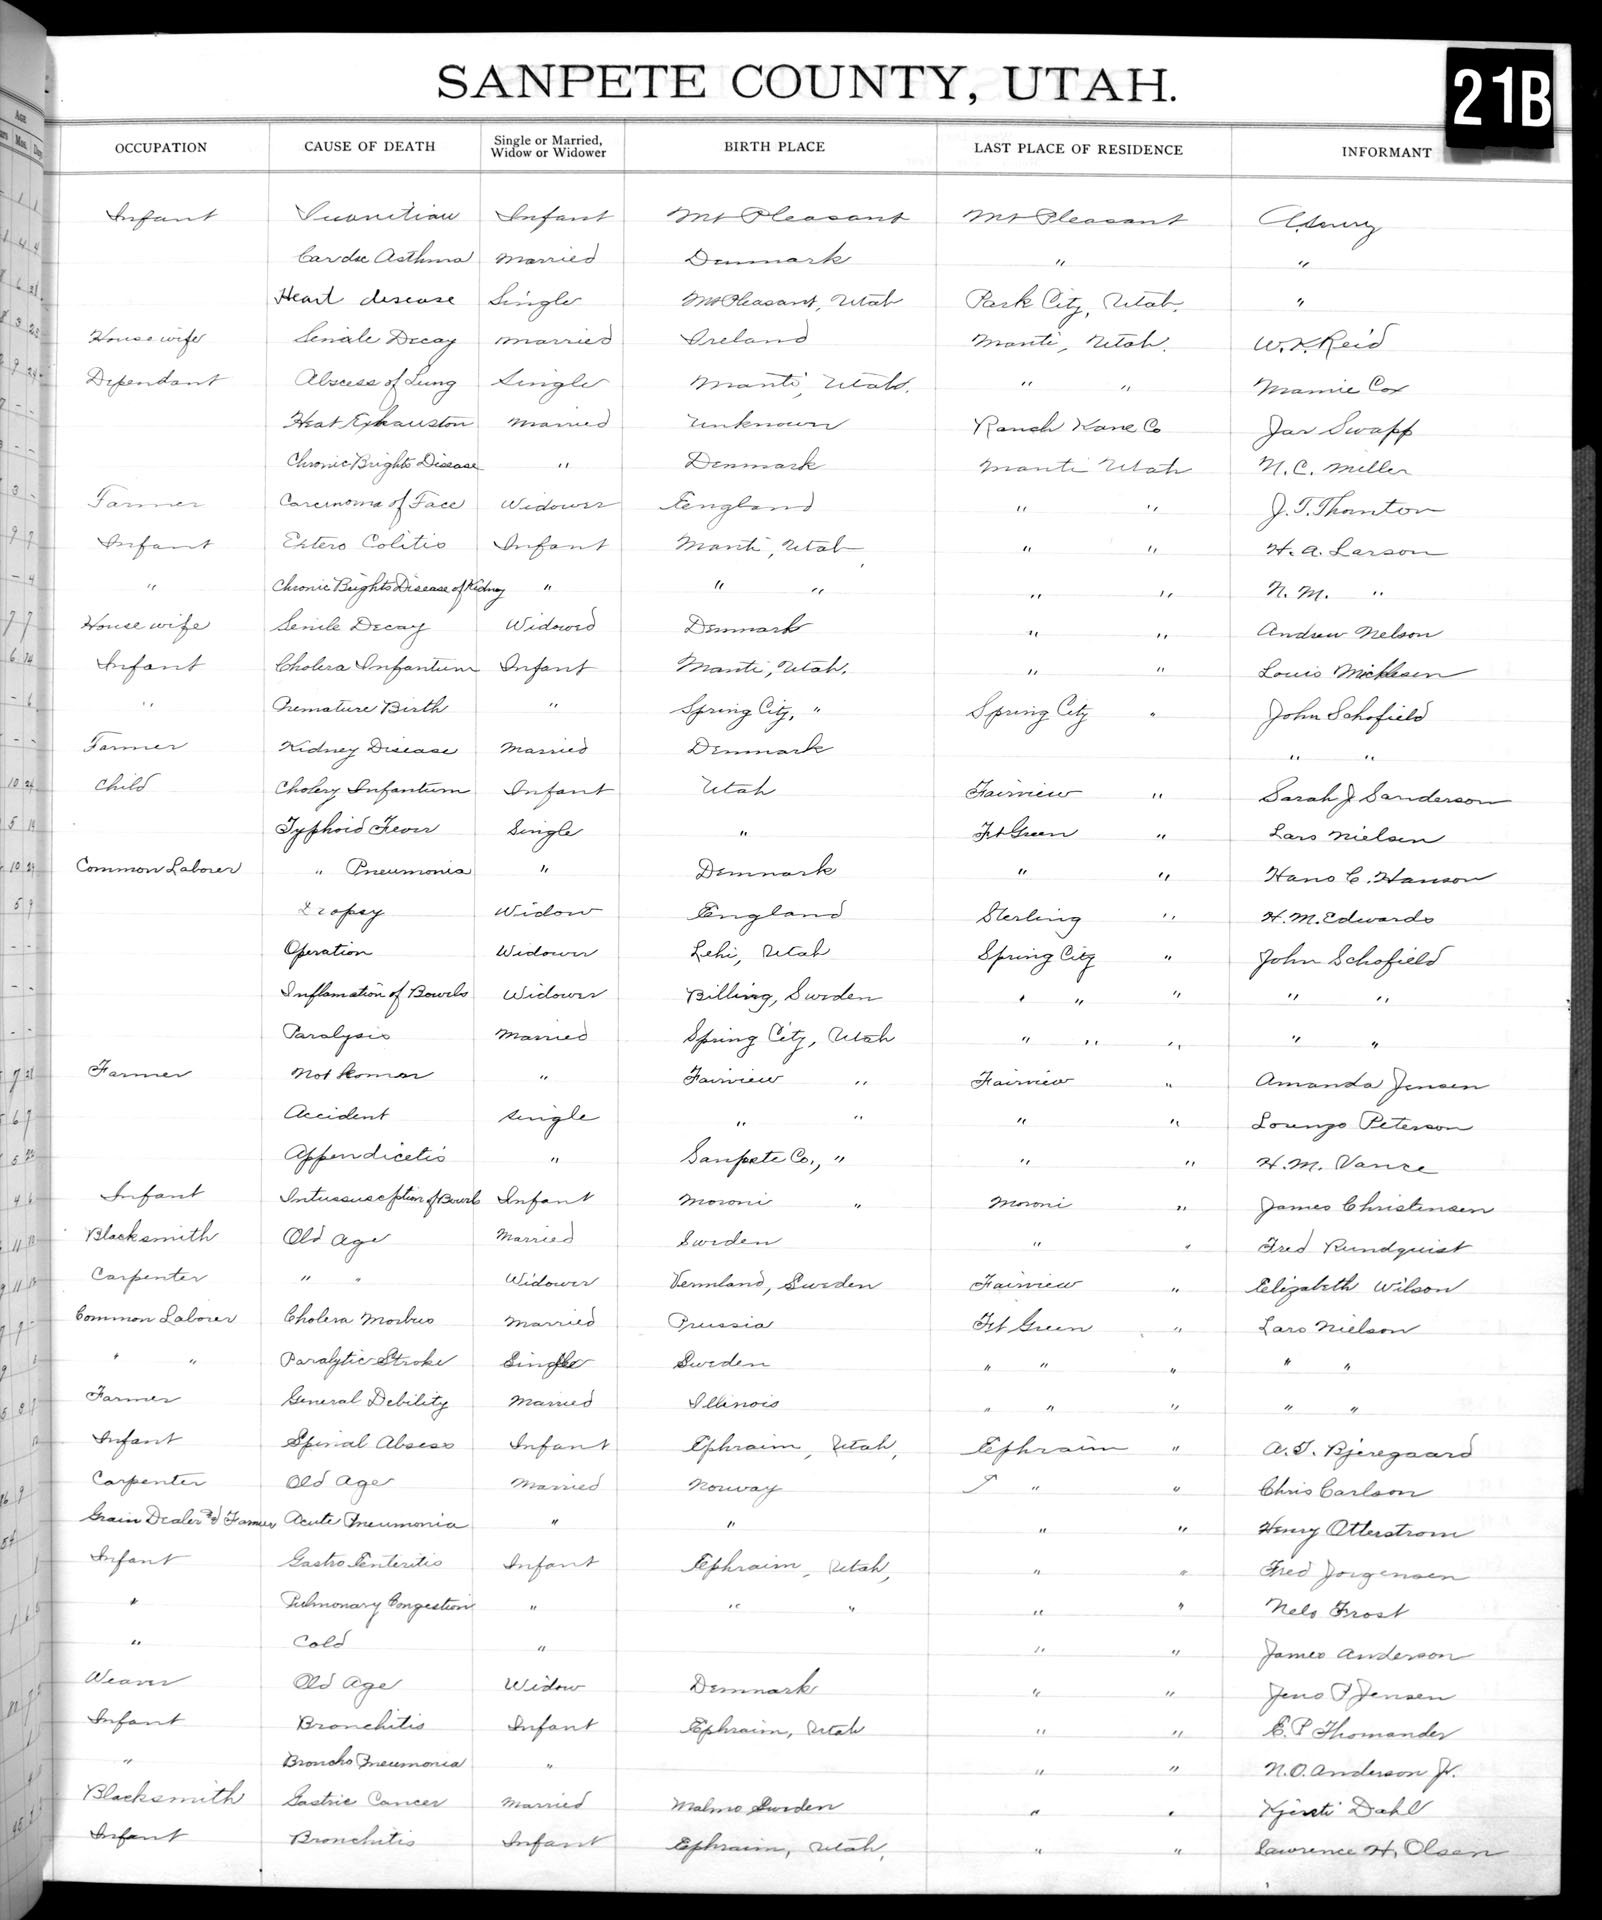 SANPETE COUNTY, UTAH.
21B
OCCUPATION CAUSE OF DEATH Single or Married, Widow or Widower BIRTH PLACE LAST PLACE OF RESIDENCE INFORMANT
Infant Inanition Infant Mt Pleasant Mt Pleasant
Cardic Asthma Married Denmark " "
Heart disease Single Mt Pleasant, Utah Park City, Utah. "
Housewife Senile Decay Married Ireland Manti, Utah. W. K. Reid
Dependant Abscess of Lung Single Manti, Utah. " " Mamie Cox
Heat Exhauston Married Unknown Ranch Kane Co Jas Swapp
Chronic Brights Disease " Denmark Manti Utah N. C. Miller
Farmer Carcinoma of Face Widower England " " J. T. Thornton
Infant Entero Colitis Infant Manti, Utah " " H. A. Larson
" Chronic Brights Disease of Kidney " " " " " N. M. "
House wife Senile Decay Widowed Denmark " " Andrew Nelson
Infant Cholera Infantum Infant Manti, Utah. " " Louis Micklesen
" Premature Birth " Spring City, " Spring City " John Schofield
Farmer Kidney Disease Married Denmark " "
Child Cholery Infantum Infant Utah Fairview " Sarah J Sanderson
Typhoid Fever Single " Ft Green " Lars Nielsen
Common Laborer " Pneumonia " Denmark " " Hans C. Hanson
Dropsy Widow England Sterling " H. M. Edwards
Operation Widower Lehi, Utah Spring City " John Schofield
Inflamation of Bowels Widower Billing, Sweden " " " " "
Paralysis Married Spring City, Utah " " " " "
Farmer Not Known " Fairview " Fairview " Amanda Jensen
Accident single " " " " Lorenzo Peterson
Appendicetis " Sanpete Co., " " " H. M. Vance
Infant Intussusception of Bowels Infant Moroni " Moroni " James Christensen
Blacksmith Old Age Married Sweden " " Fred Rundquist
Carpenter " " Widower Vermland, Sweden Fairview " Elizabeth Wilson
Common Laborer Cholera Morbus Married Prussia Ft Green " Lars Nielson
" " Paralytic Stroke Single Sweden " " " " "
Farmer General Debility Married Illinois " " " " "
Infant Spinal Absess Infant Ephraim, Utah, Ephraim " A. T. Bjeregaard
Carpenter Old Age Married Norway " " Chris Carlson
Grain Dealer & Farmer Acute Pneumonia " " " " Henry Otterstrom
Infant Gastro Enteritis Infant Ephraim, Utah, " " Fred Jorgensen
" Pulmonary Congestion " " " " " Nels Frost
" Cold " " " James Anderson
Weaver Old Age Widow Denmark " " Jens P Jensen
Infant Bronchitis Infant Ephraim, Utah " " E. P. Thomander
" Broncho Pneumonia " " " N. O. Anderson Jr.
Blacksmith Gastric Cancer Married Malmo Sweden " " Kjersti Dahl
Infant Bronchitis Infant Ephraim, Utah, " " Lawrence H. Olsen